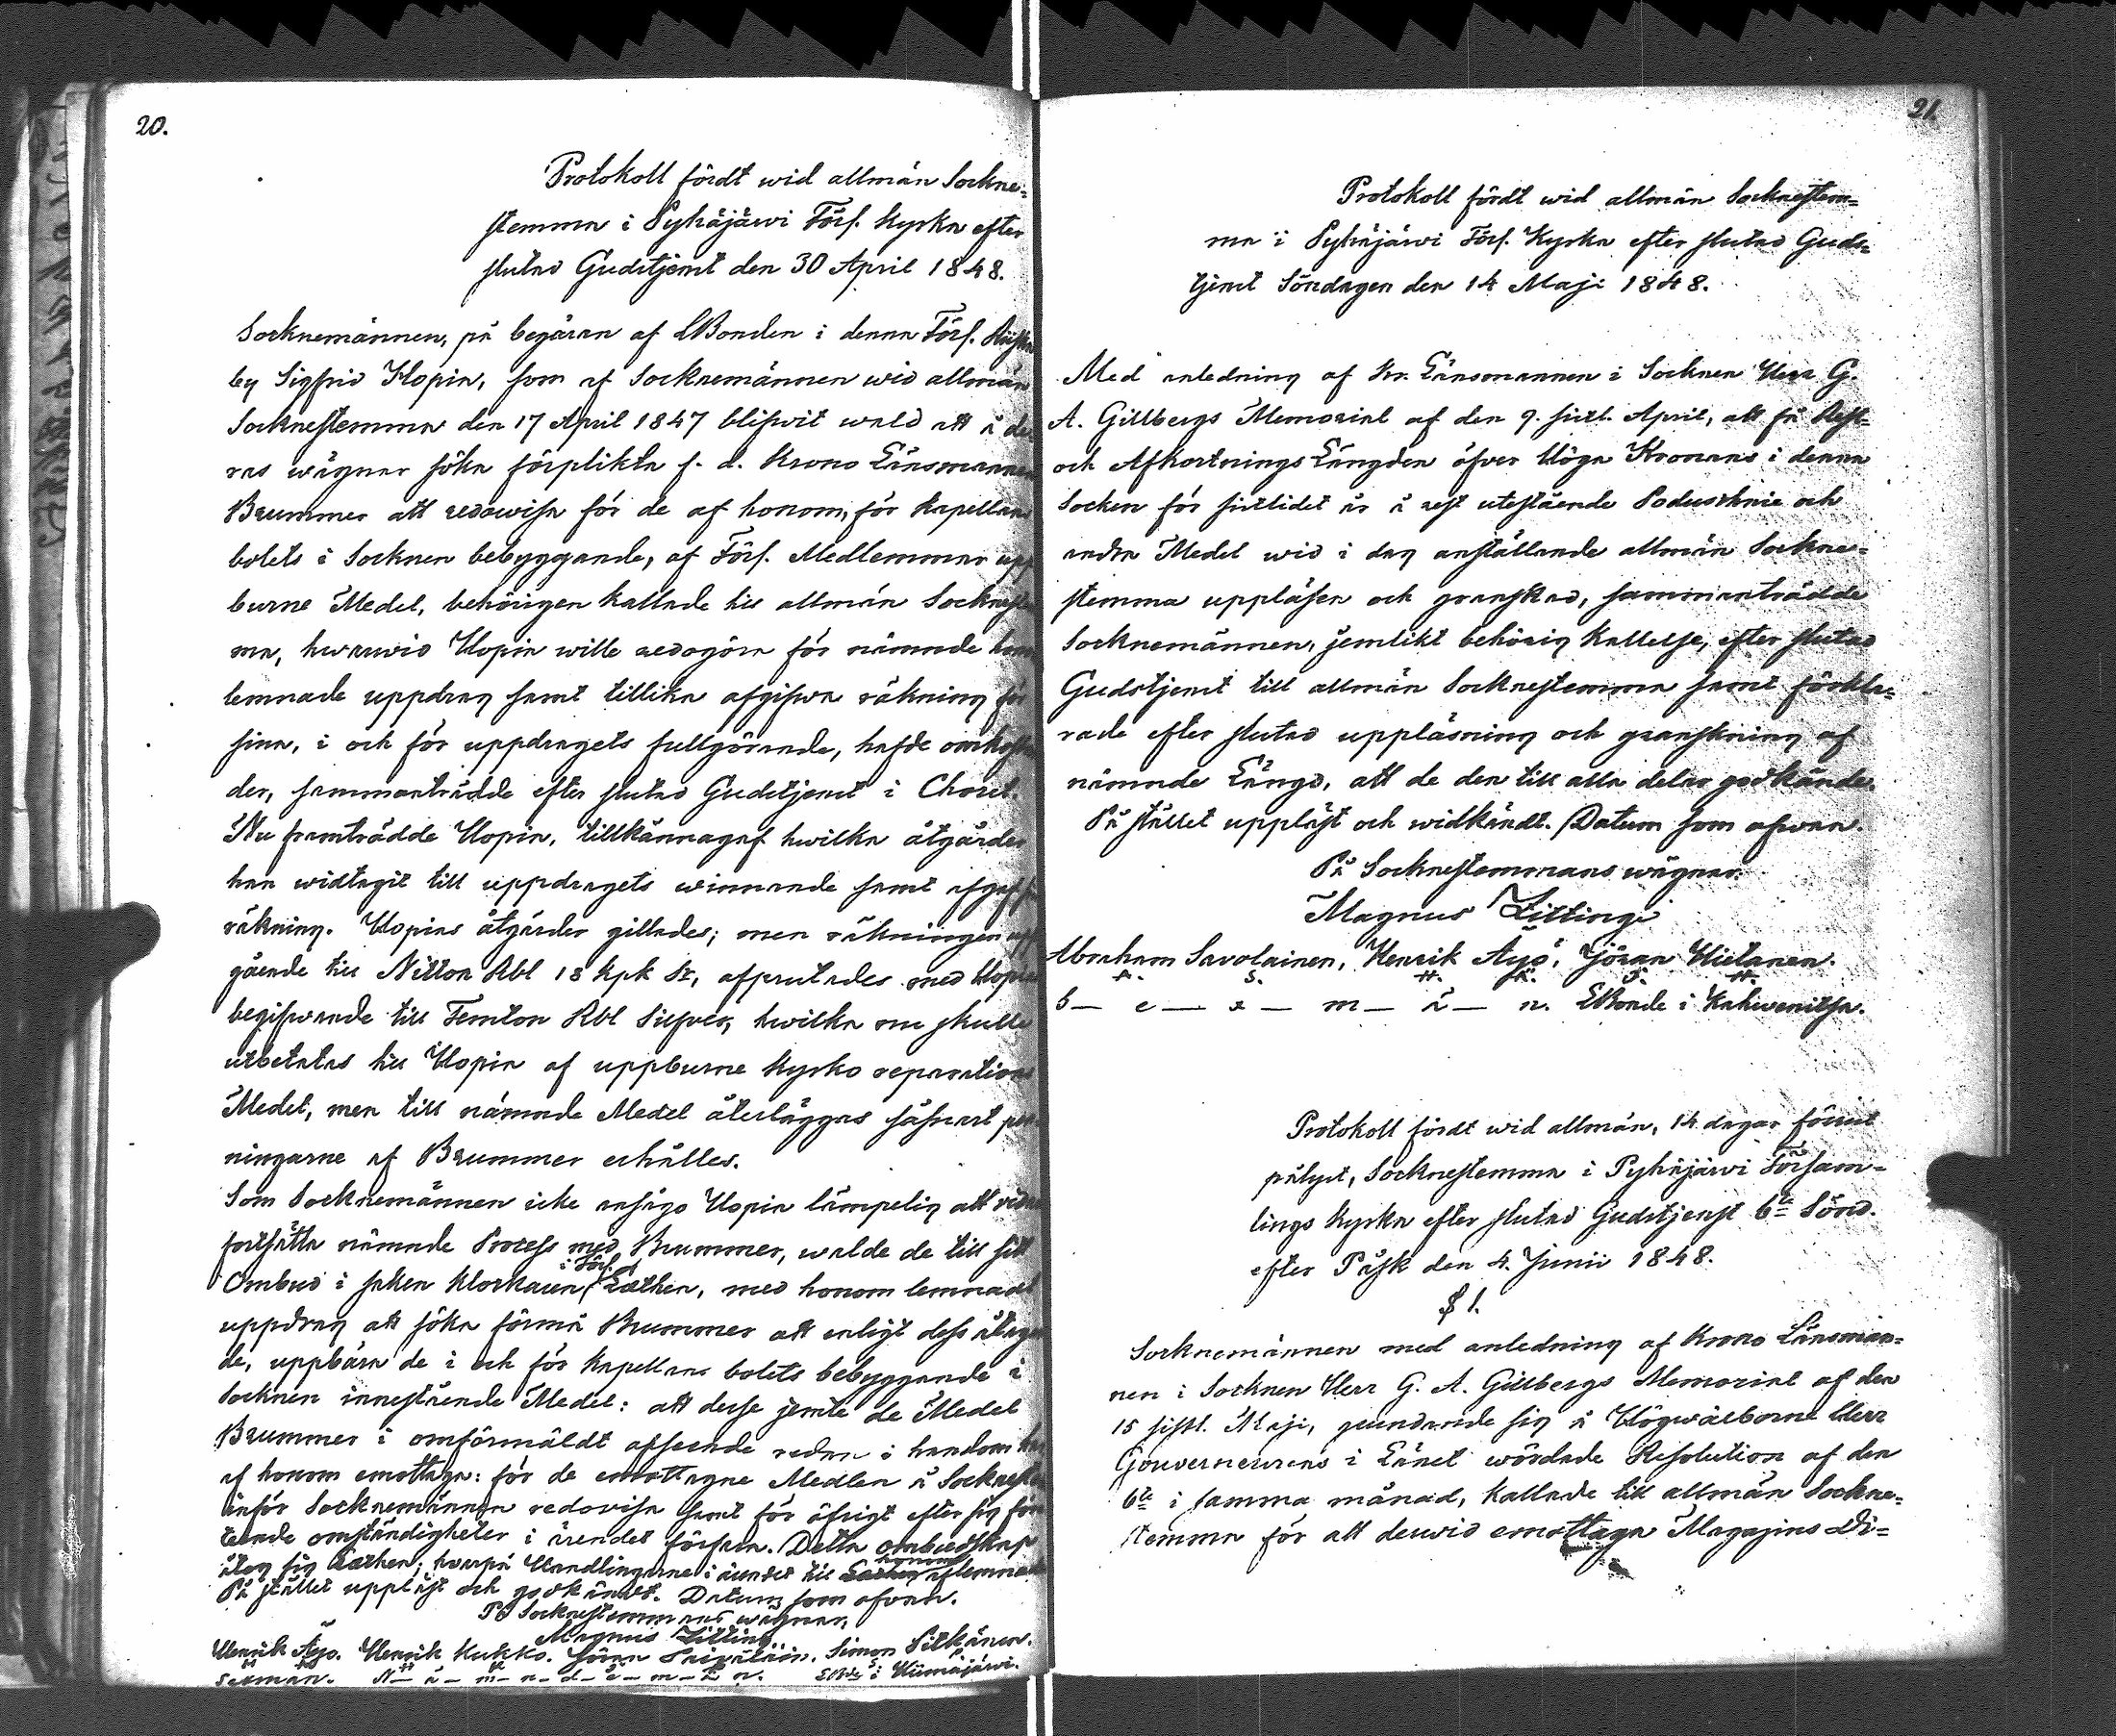 20.
Protokoll fördt wid allmän Sockne-
stemma i Pyhäjärwi Förs. Kyrka efter
slutad Gudstjenst den 30 April 1848.
Socknemännen, på begäran af LBonden i denna Förs.
by Sigfrid Hopia, som af Socknemännen wid allmän
Socknestemma den 17 April 1847 blifwit wald att å de
ras wägnar söka förplikta f. d. Krono Länsmannen
Brummer att redowisa för de af honom, för Kapellans
bolets i Socknen bebyggande, af Förs. Medlemmar upp
burne Medel, behörigen kallade till allmän Sockneste
ma, hwarwid Hopia wille redogöra för nämnde hon
lemnade uppdrag samt tillika afgifwa räkning för
sina, i och för uppdragets fullgörande, hafde omkostn
der, sammanträdde efter slutad Gudstjenst i Choret.
Nu framträdde Hopia, tillkännagaf hwilka åtgärder
han widtagit till uppdragets winnande samt afgaf
räkning. Hopias åtgärder gillades; men räkningen upp
gående till Nitton Rbl 18 kpk Sr, afprutades med Hopias
begifwande till Femton Rbl Silfver, hwilka nu skulle
utbetalas till Hopia af uppburne Kyrko reparations
Medel, men till nämnde Medel återläggas såsnart pen
ningarne af Brummer erhålles.
Som Socknemännen icke ansågo Hopia lämpelig att widare
fortsätta nämnde Process med Brummer, walde de till sitt
Ombud i saken Klockaren i Förs. Lathen, med honom lemnadt
uppdrag att söka förmå Brummer att enligt dess åtagan
de, uppbära de i och för Kapellans bolets bebyggande i
Socknen innestående Medel: att desse jemte de Medel
Brummer i omförmäldt afseende redan i handom har
af honom emottaga: för de emottagne Medlen å Socknest
inför Socknemännen redovisa samt för öfrigt efter sig före
teende omständigheter i ärendet förfara. Detta ombudskap
åtog sig Lathen; hwarpå Handlingarne i ärendet till honom aflemnades
På stället uppläst och godkändt. Datum som ofvan.
På Socknestemmans wägnar,
Magnus Zitting
Henrik Äijö. Henrik Kukko. Simon Pitkänen.
sexman. N - ä - m - n - d - e - m - ä - n. LBde i Kiimajärwi.
21.
Protokoll fördt wid allmän Socknestem-
ma i Pyhäjärwi Förs. Kyrka efter slutad Guds-
tjenst Söndagen den 14 Maji 1848.
Med anledning af Kr. Länsmannen i Socknen Herr G.
A. Gillbergs Memorial af den 9. sistl. April, att få Rest-
och Afkortnings Längden öfver Höga Kronans i denna
Socken för sistlidet år å rest utestående Poduschnie och
andra Medel wid i dag anställande allmän Sockne-
stemma uppläsen och granskad, sammanträdde
Socknemännen, jemlikt behörig kallelse, efter slutad
Gudstjenst till allmän Socknestemma samt förkla-
rade efter slutad uppläsning och granskning af
nämnde Längd, att de den till alla delar godkände.
På stället uppläst och widkändt. Datum som ofwan.
På Socknestemmans wägnar.
Magnus Zitting
Abraham Savolainen, Henrik Äijö, Göran Hietanen.
A. S. H. Ä. G. H.
6 - e - x - m - ä - n. LBonde i Kahwenitsa.
Protokoll fördt wid allmän, 14 dagar förut
pålyst, Socknestemma i Pyhäjärwi Försam-
lings Kyrka efter slutad Gudstjenst 6te Sönd.
efter Påsk den 4. Junii 1848.
§ 1.
Socknemännen med anledning af Krono Länsman-
nen i Socknen Herr G. A. Gillbergs Memorial af den
15 sistl. Maji, grundande sig å Högwälborne Herr
Gouverneurens i Länet wördade Resolution af den
6te i samma månad, kallade till allmän Sockne-
stemma för att derwid emottaga Magazins Di-